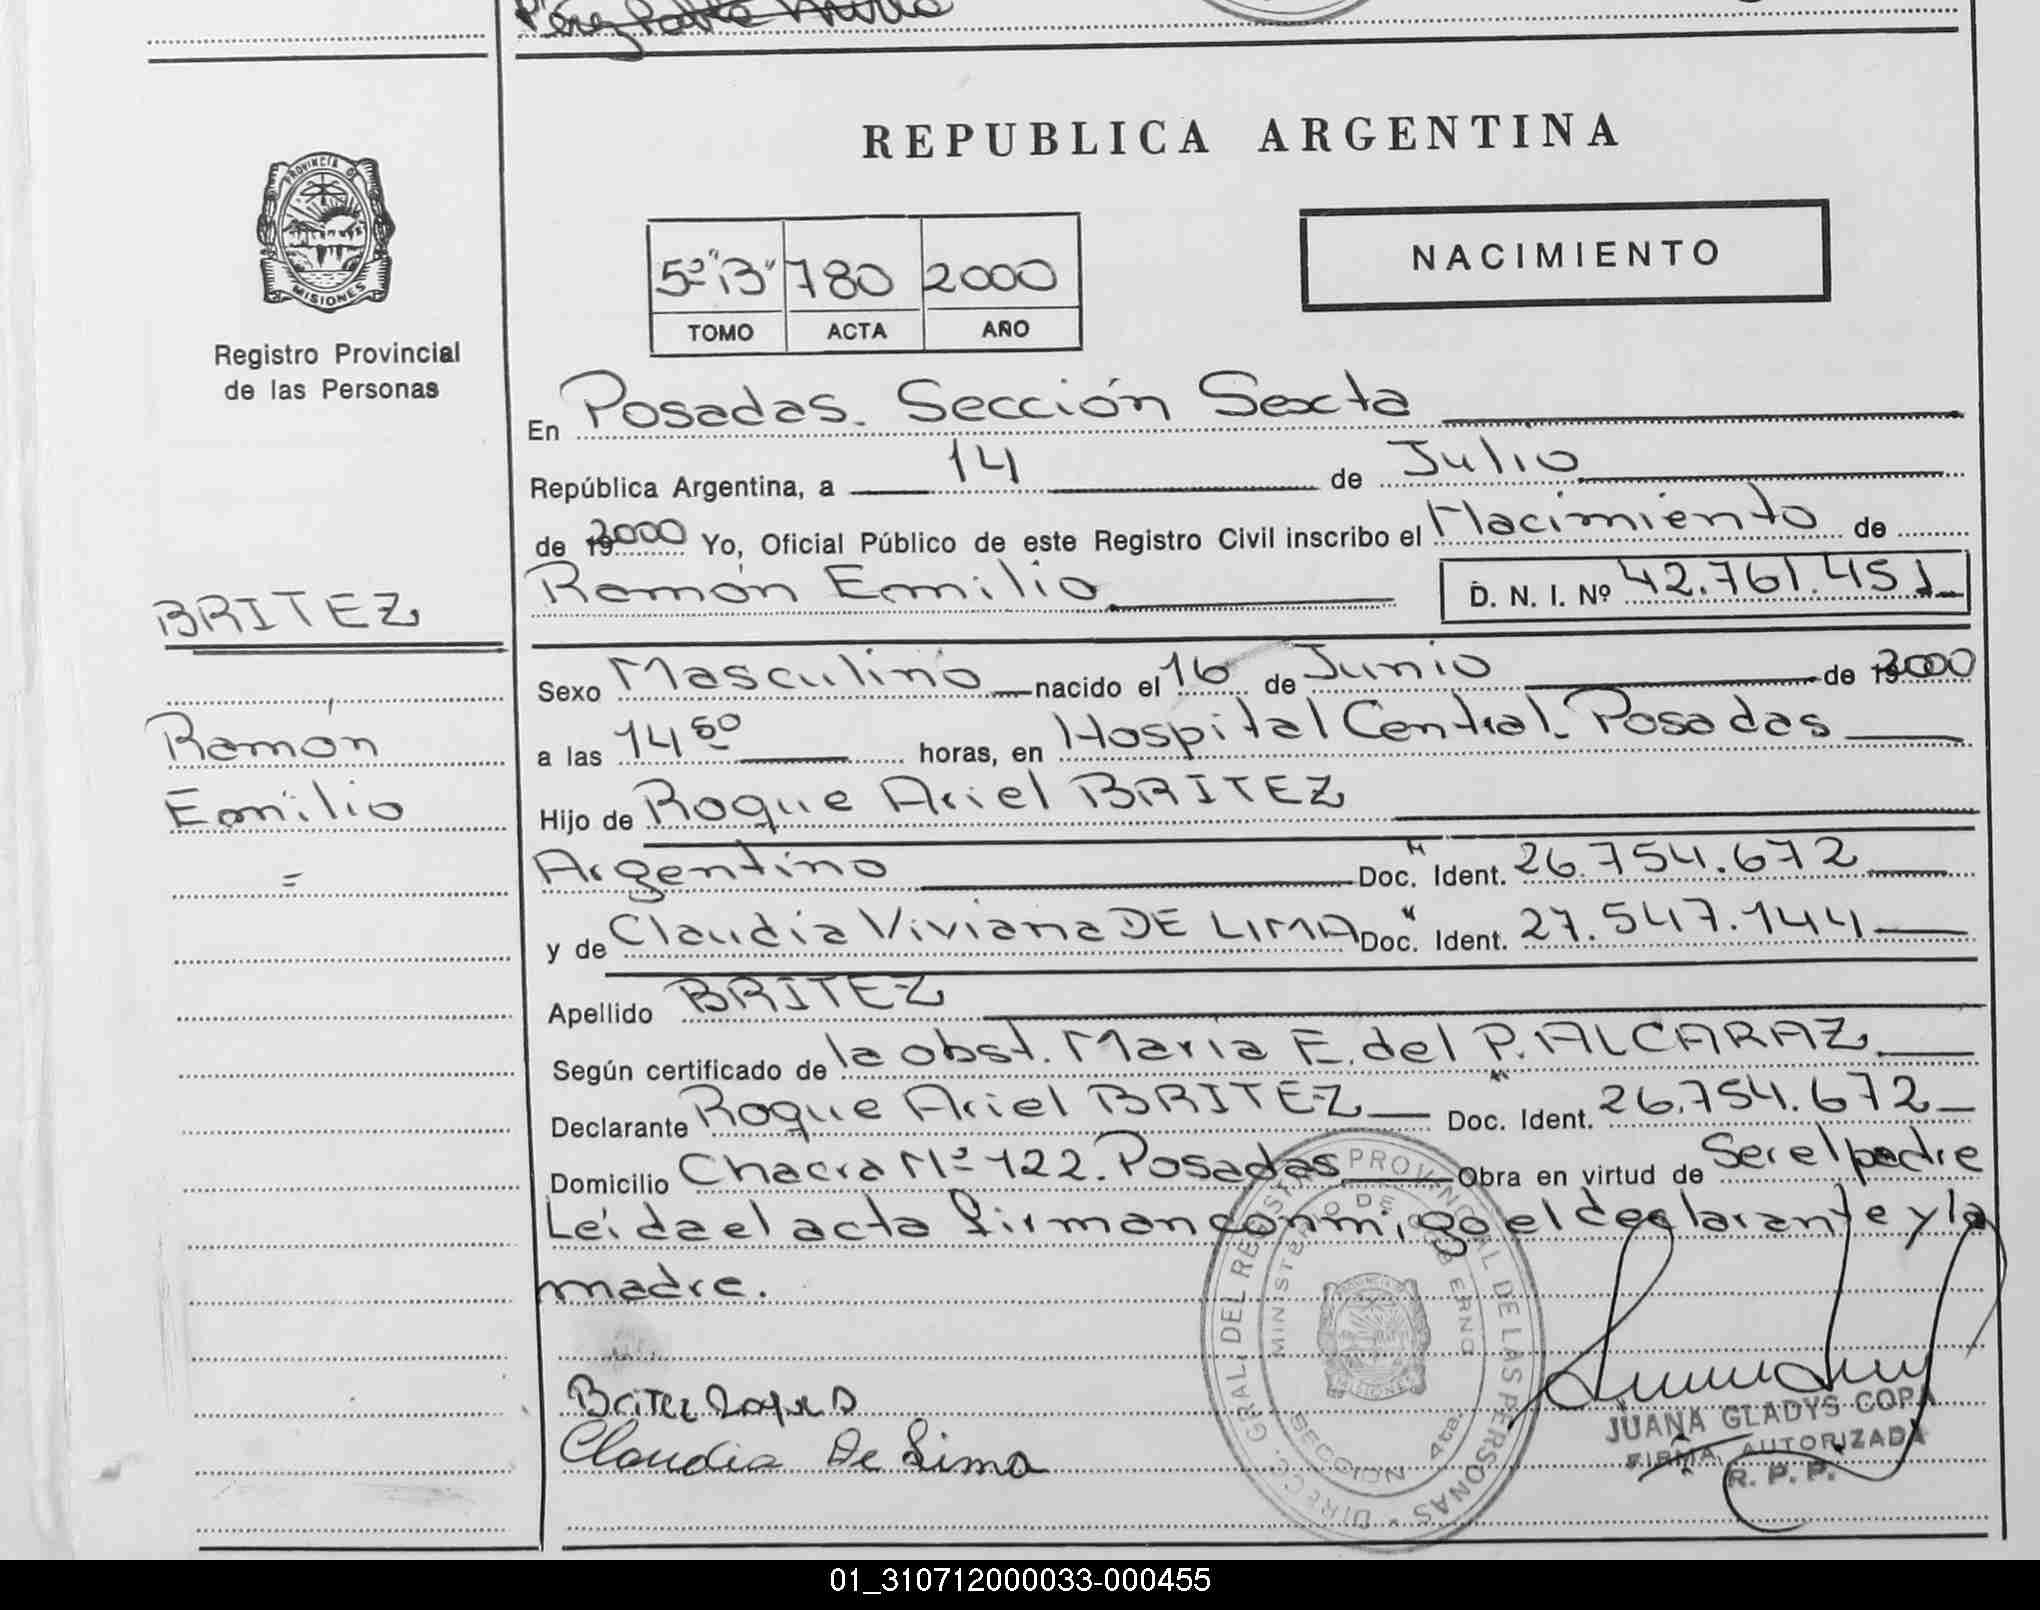 Pérez
REPUBLICA ARGENTINA
PROVINCIA DE
MISIONES
Registro Provincial
de las Personas
5º "B" 780 2000
TOMO ACTA AÑO
NACIMIENTO
En Posadas. Sección Sexta
República Argentina, a 14 de Julio
de 2000 Yo, Oficial Público de este Registro Civil inscribo el Nacimiento de
Ramón Emilio D. N. I. Nº 42.761.451
BRITEZ
Ramón
Emilio
=
Sexo Masculino nacido el 16 de Junio de 2000
a las 14 50 horas, en Hospital Central. Posadas
Hijo de Roque Ariel BRITEZ
Argentino Doc. "N" Ident. 26.754.672
y de Claudia Viviana DE LIMA Doc. " Ident. 27.547.144
Apellido BRITEZ
Según certificado de la obst. María E. del P. ALCARAZ
Declarante Roque Ariel BRITEZ Doc. " Ident. 26.754.672
Domicilio Chacra Nº 122. Posadas Obra en virtud de Ser el padre
Leída el acta firman conmigo el declarante y la
madre.
Britez Roque A
Claudia De Lima
DIRECC. GRAL. DEL REGISTRO PROVINCIAL DE LAS PERSONAS
MINISTERIO DE GOBIERNO
SECCION 4ta.
JUANA GLADYS COPA
FIRMA AUTORIZADA
R. P. P.
01_310712000033-000455